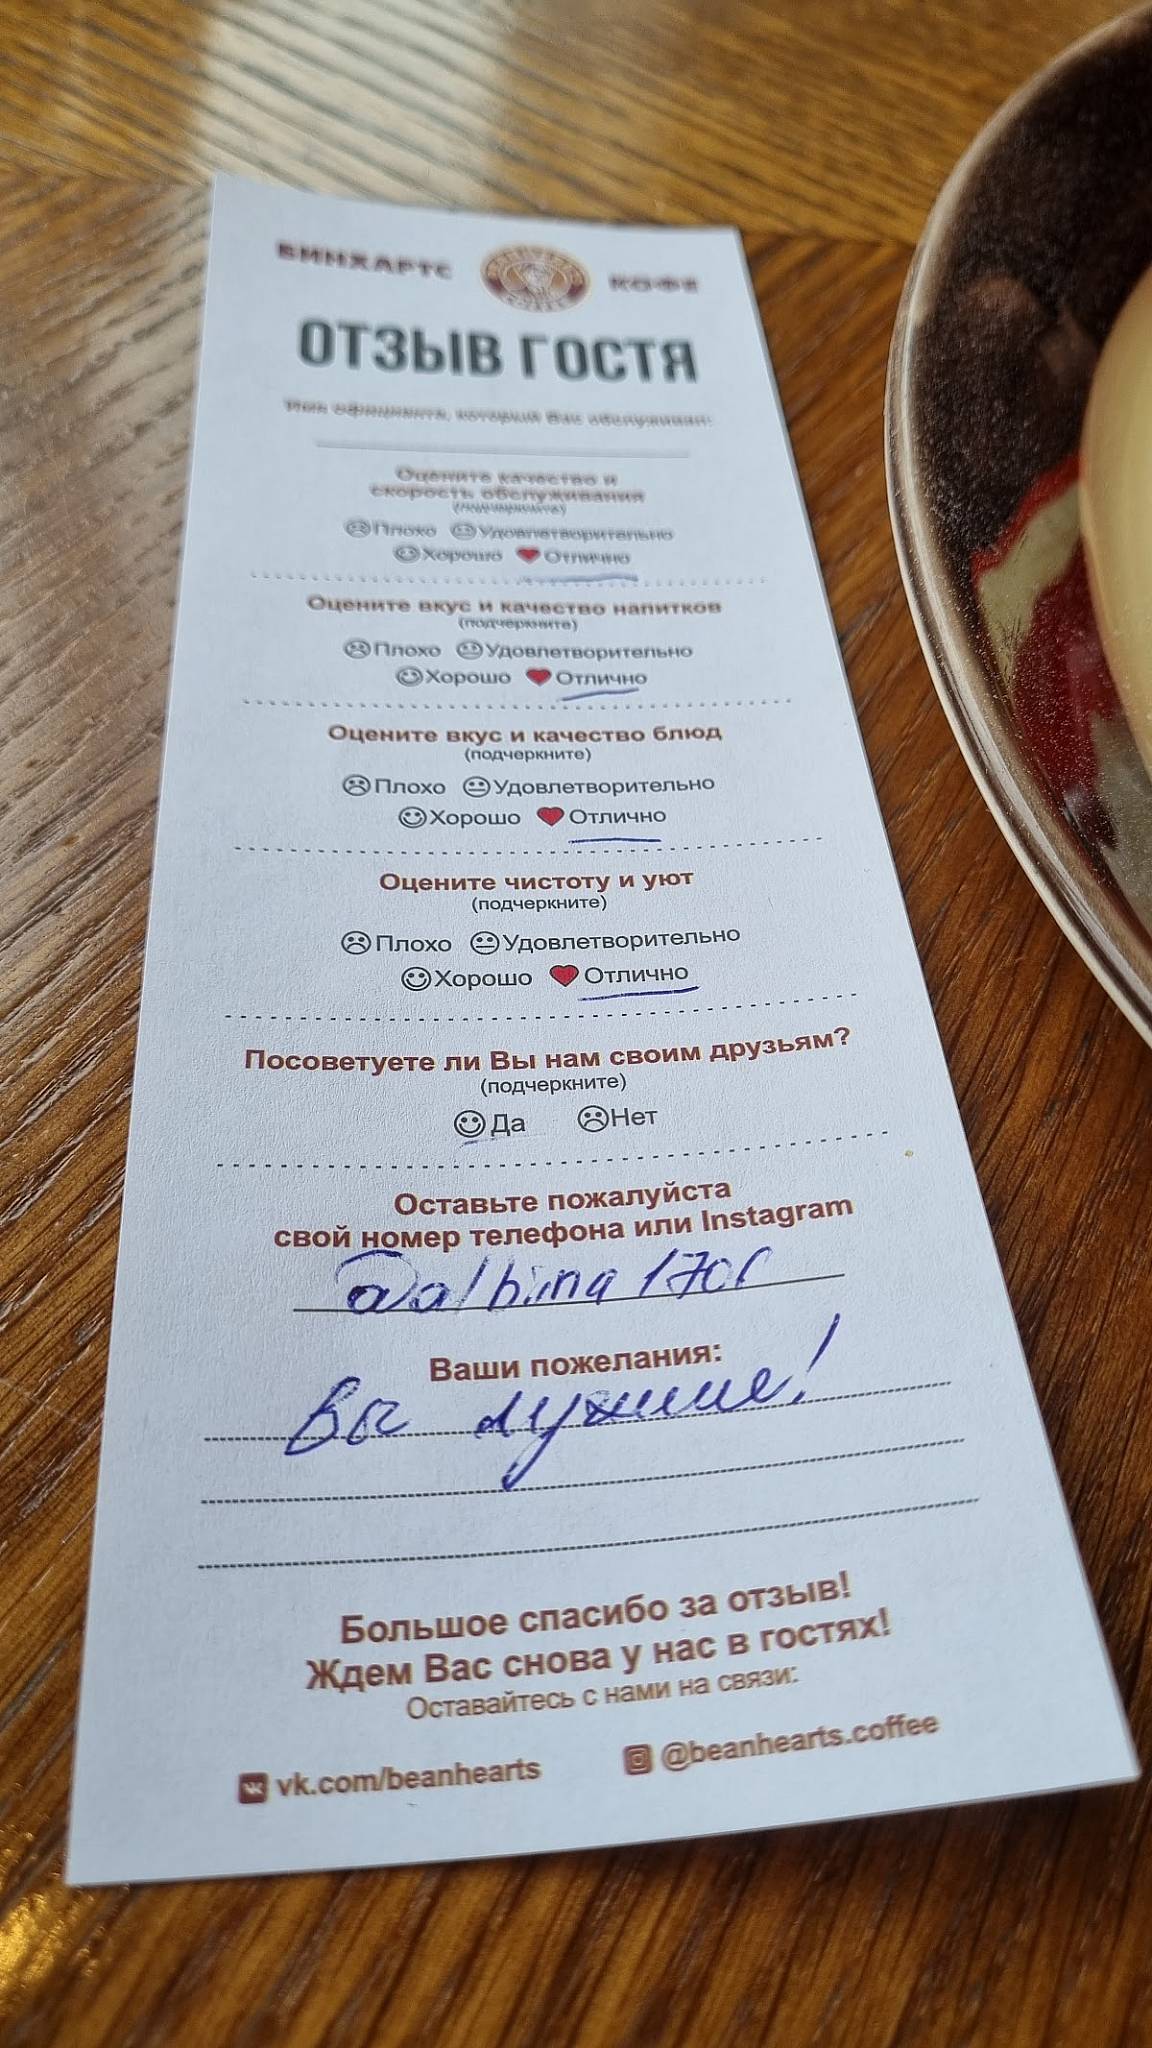 БИНХАРТС КОФЕ
ОТЗЫВ ГОСТЯ
Имя официанта, который Вас обслуживал:
Оцените качество и
скорость обслуживания
(подчеркните)
Плохо Удовлетворительно
Хорошо Отлично
Оцените вкус и качество напитков
(подчеркните)
Плохо Удовлетворительно
Хорошо Отлично
Оцените вкус и качество блюд
(подчеркните)
Плохо Удовлетворительно
Хорошо Отлично
Оцените чистоту и уют
(подчеркните)
Плохо Удовлетворительно
Хорошо Отлично
Посоветуете ли Вы нам своим друзьям?
(подчеркните)
Да Нет
Оставьте пожалуйста
свой номер телефона или Instagram
Ваши пожелания:
Вы лучшие!
Большое спасибо за отзыв!
Ждем Вас снова у нас в гостях!
Оставайтесь с нами на связи:
vk.com/beanhearts @beanhearts.coffee